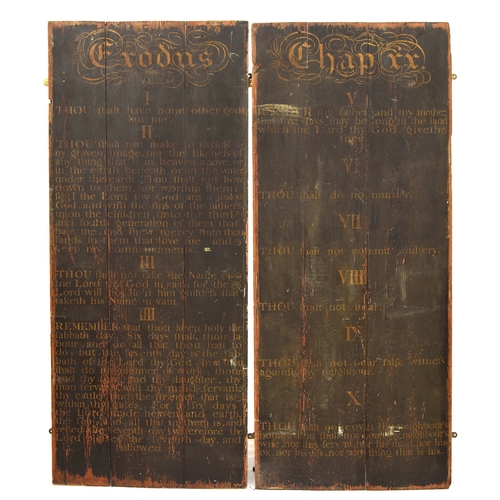 Exodus
I
THOU shalt have none other gods
but me.
II
THOU shalt not make to thyself
any graven image, nor the likeness of
any thing that is in heaven above, or
in the earth beneath, or in the water
under the earth. Thou shalt not bow
down to them, nor worship them:
for I the Lord thy God am a jealous
God, and visit the sins of the fathers
upon the children unto the third
and fourth generation of them that
hate me, and shew mercy unto thou-
sands in them that love me, and
keep my commandments.
III
THOU shalt not take the Name of
the Lord thy God in vain: for the
Lord will not hold him guiltless that
taketh his Name in vain.
IIII
REMEMBER that thou keep holy the
sabbath day. Six days shalt thou la-
bour, and do all that thou hast to
do: but the seventh day is the sab-
bath of the Lord thy God. In it thou
shalt do no manner of work, thou,
and thy son, and thy daughter, thy
man-servant, and thy maid-servant,
thy cattle, and the stranger that is
within thy gates. For in six days
the Lord made heaven and earth,
the sea, and all that in them is, and
rested the seventh day: wherefore the
Lord blessed the seventh day, and
hallowed
Chap xx.
V
thy father and thy mother
days may be long in the land
which the Lord thy God giveth
thee.
VI
THOU shalt do no murder.
VII
THOU shalt not commit adultery.
VIII
THOU shalt not steal.
IX
THOU shalt not bear false witness
against thy neighbour.
X
THOU shalt not covet thy neighbour's
house, thou shalt not covet thy neighbour's
wife, nor his servant, nor his maid, nor his
ox, nor his ass, nor any thing that is his.